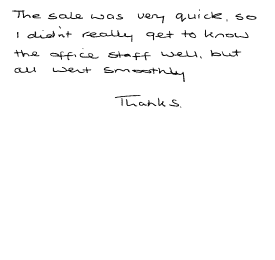 The sale was very quick, so
I didn't really get to know
the office staff well, but
all went smoothly
Thanks.